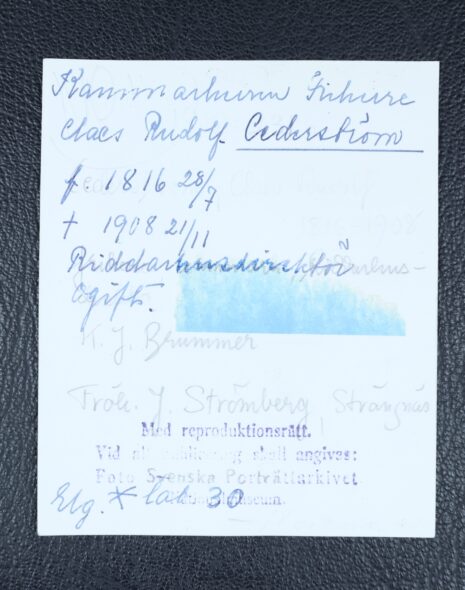 Kammarherren Friherre
Claes Rudolf Cederström
f. 1816 28/7
† 1908 21/11
Riddarhusdirektör
Ogift.
K. J. Brummer
Fröken J. Strömberg, Strängnäs
Med reproduktionsrätt.
Vid all publicering skall angivas:
Foto Svenska Porträttarkivet
Nationalmuseum.
Elg. * låd 30